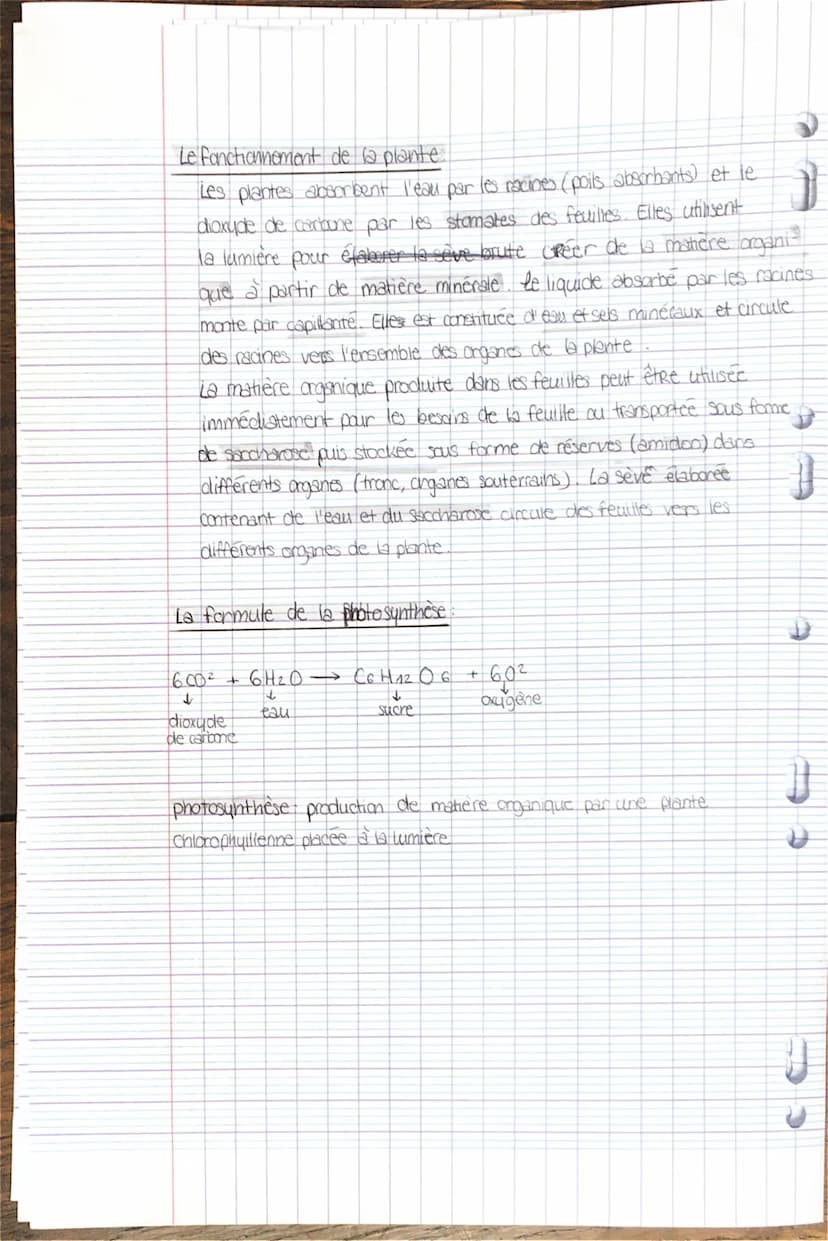 Le fonctionnement de la plante:
Les plantes absorbent l'eau par les racines (poils absorbants) et le
dioxyde de carbone par les stomates des feuilles. Elles utilisent
la lumière pour élaborer la sève brute créer de la matière organi
que à partir de matière minérale. Le liquide absorbé par les racines
monte par capillarité. Elles est constituée d'eau et sels minéraux et circule
des racines vers l'ensemble des organes de la plante.
La matière organique produite dans les feuilles peut être utilisée
immédiatement pour les besoins de la feuille ou transportée sous forme
de saccharose puis stockée sous forme de réserves (amidon) dans
différents organes (tronc, organes souterrains). La sève élaborée
contenant de l'eau et du saccharose circule des feuilles vers les
différents organes de la plante.
La formule de la photosynthèse:
6CO² + 6H2O → C6H12O6 + 6O²
↓ ↓ ↓ ↓
dioxyde eau sucre oxygène
de carbone
photosynthèse: production de matière organique par une plante
chlorophyllienne placée à la lumière